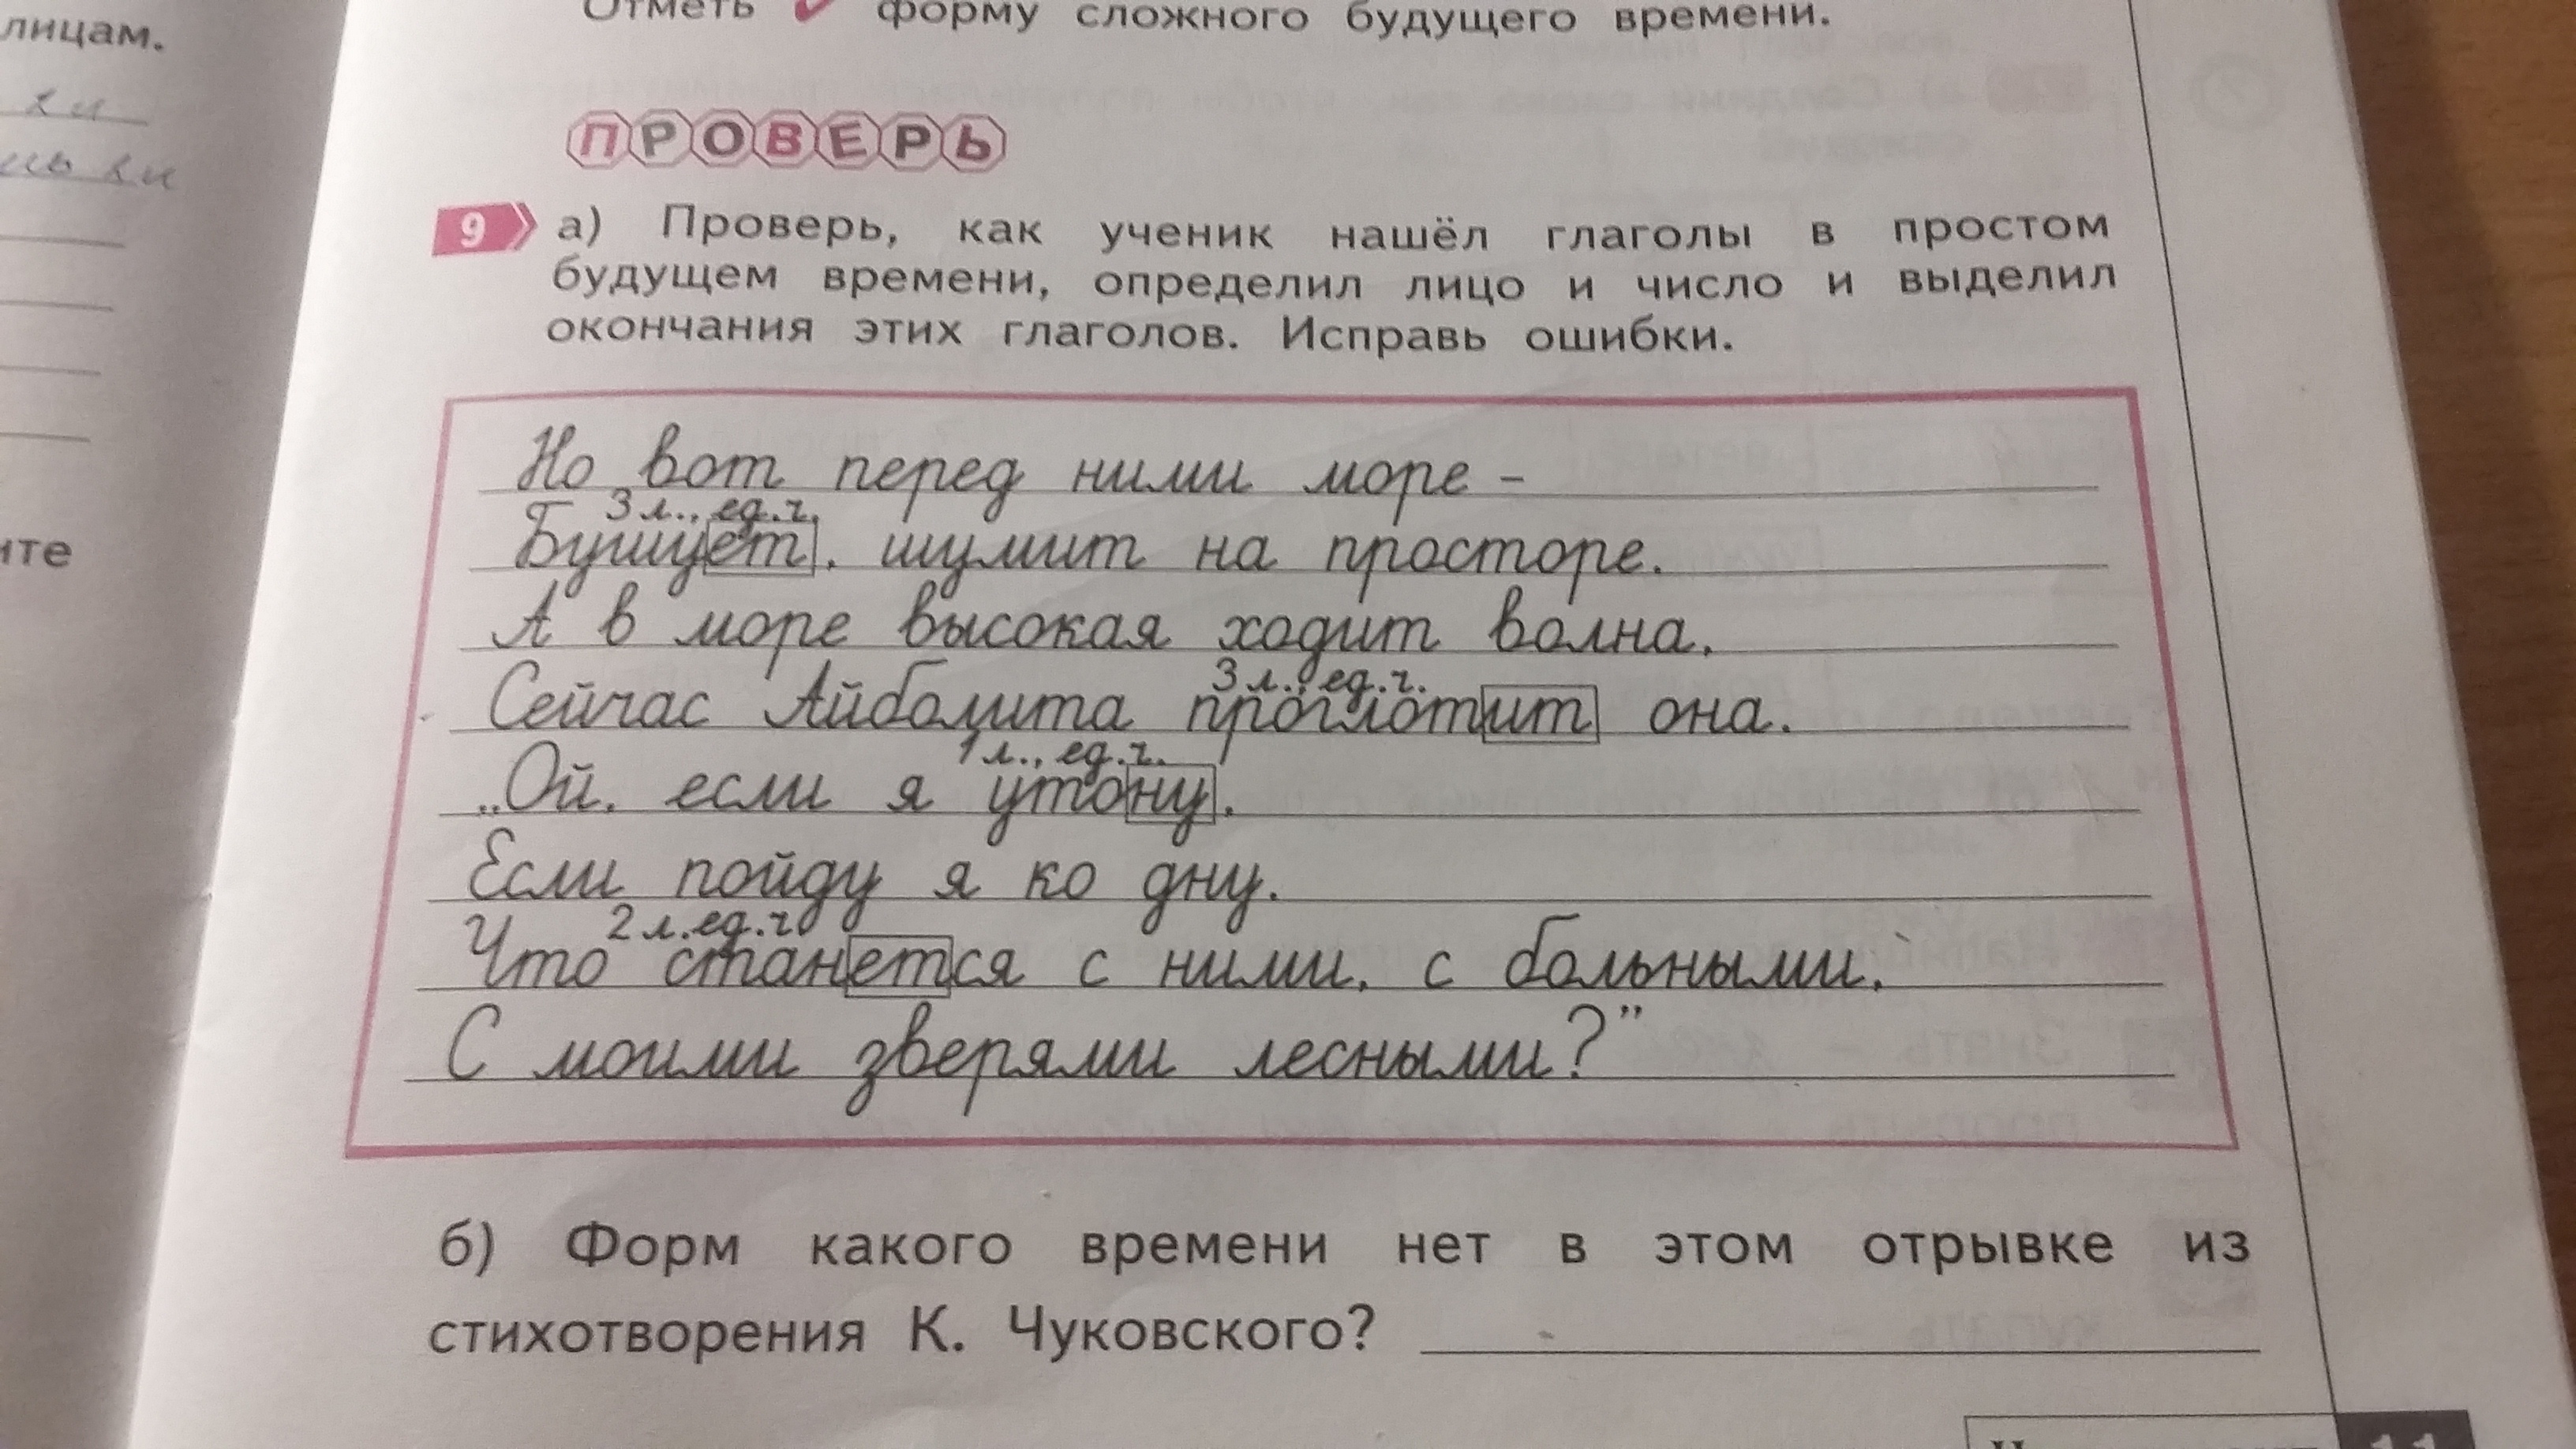 лицам.
ки
ньки
ите
Отметь ✓ форму сложного будущего времени.
ПРОВЕРЬ
9 а) Проверь, как ученик нашёл глаголы в простом
будущем времени, определил лицо и число и выделил
окончания этих глаголов. Исправь ошибки.
Но вот перед ними море –
3 л., ед.ч.
Бушует, шумит на просторе.
А в море высокая ходит волна,
3 л., ед.ч.
Сейчас Айболита проглотит она.
1 л., ед.ч.
„Ой, если я утону,
Если пойду я ко дну,
2 л. ед.ч
Что станется с ними, с больными,
С моими зверями лесными?”
б) Форм какого времени нет в этом отрывке из
стихотворения К. Чуковского?
11